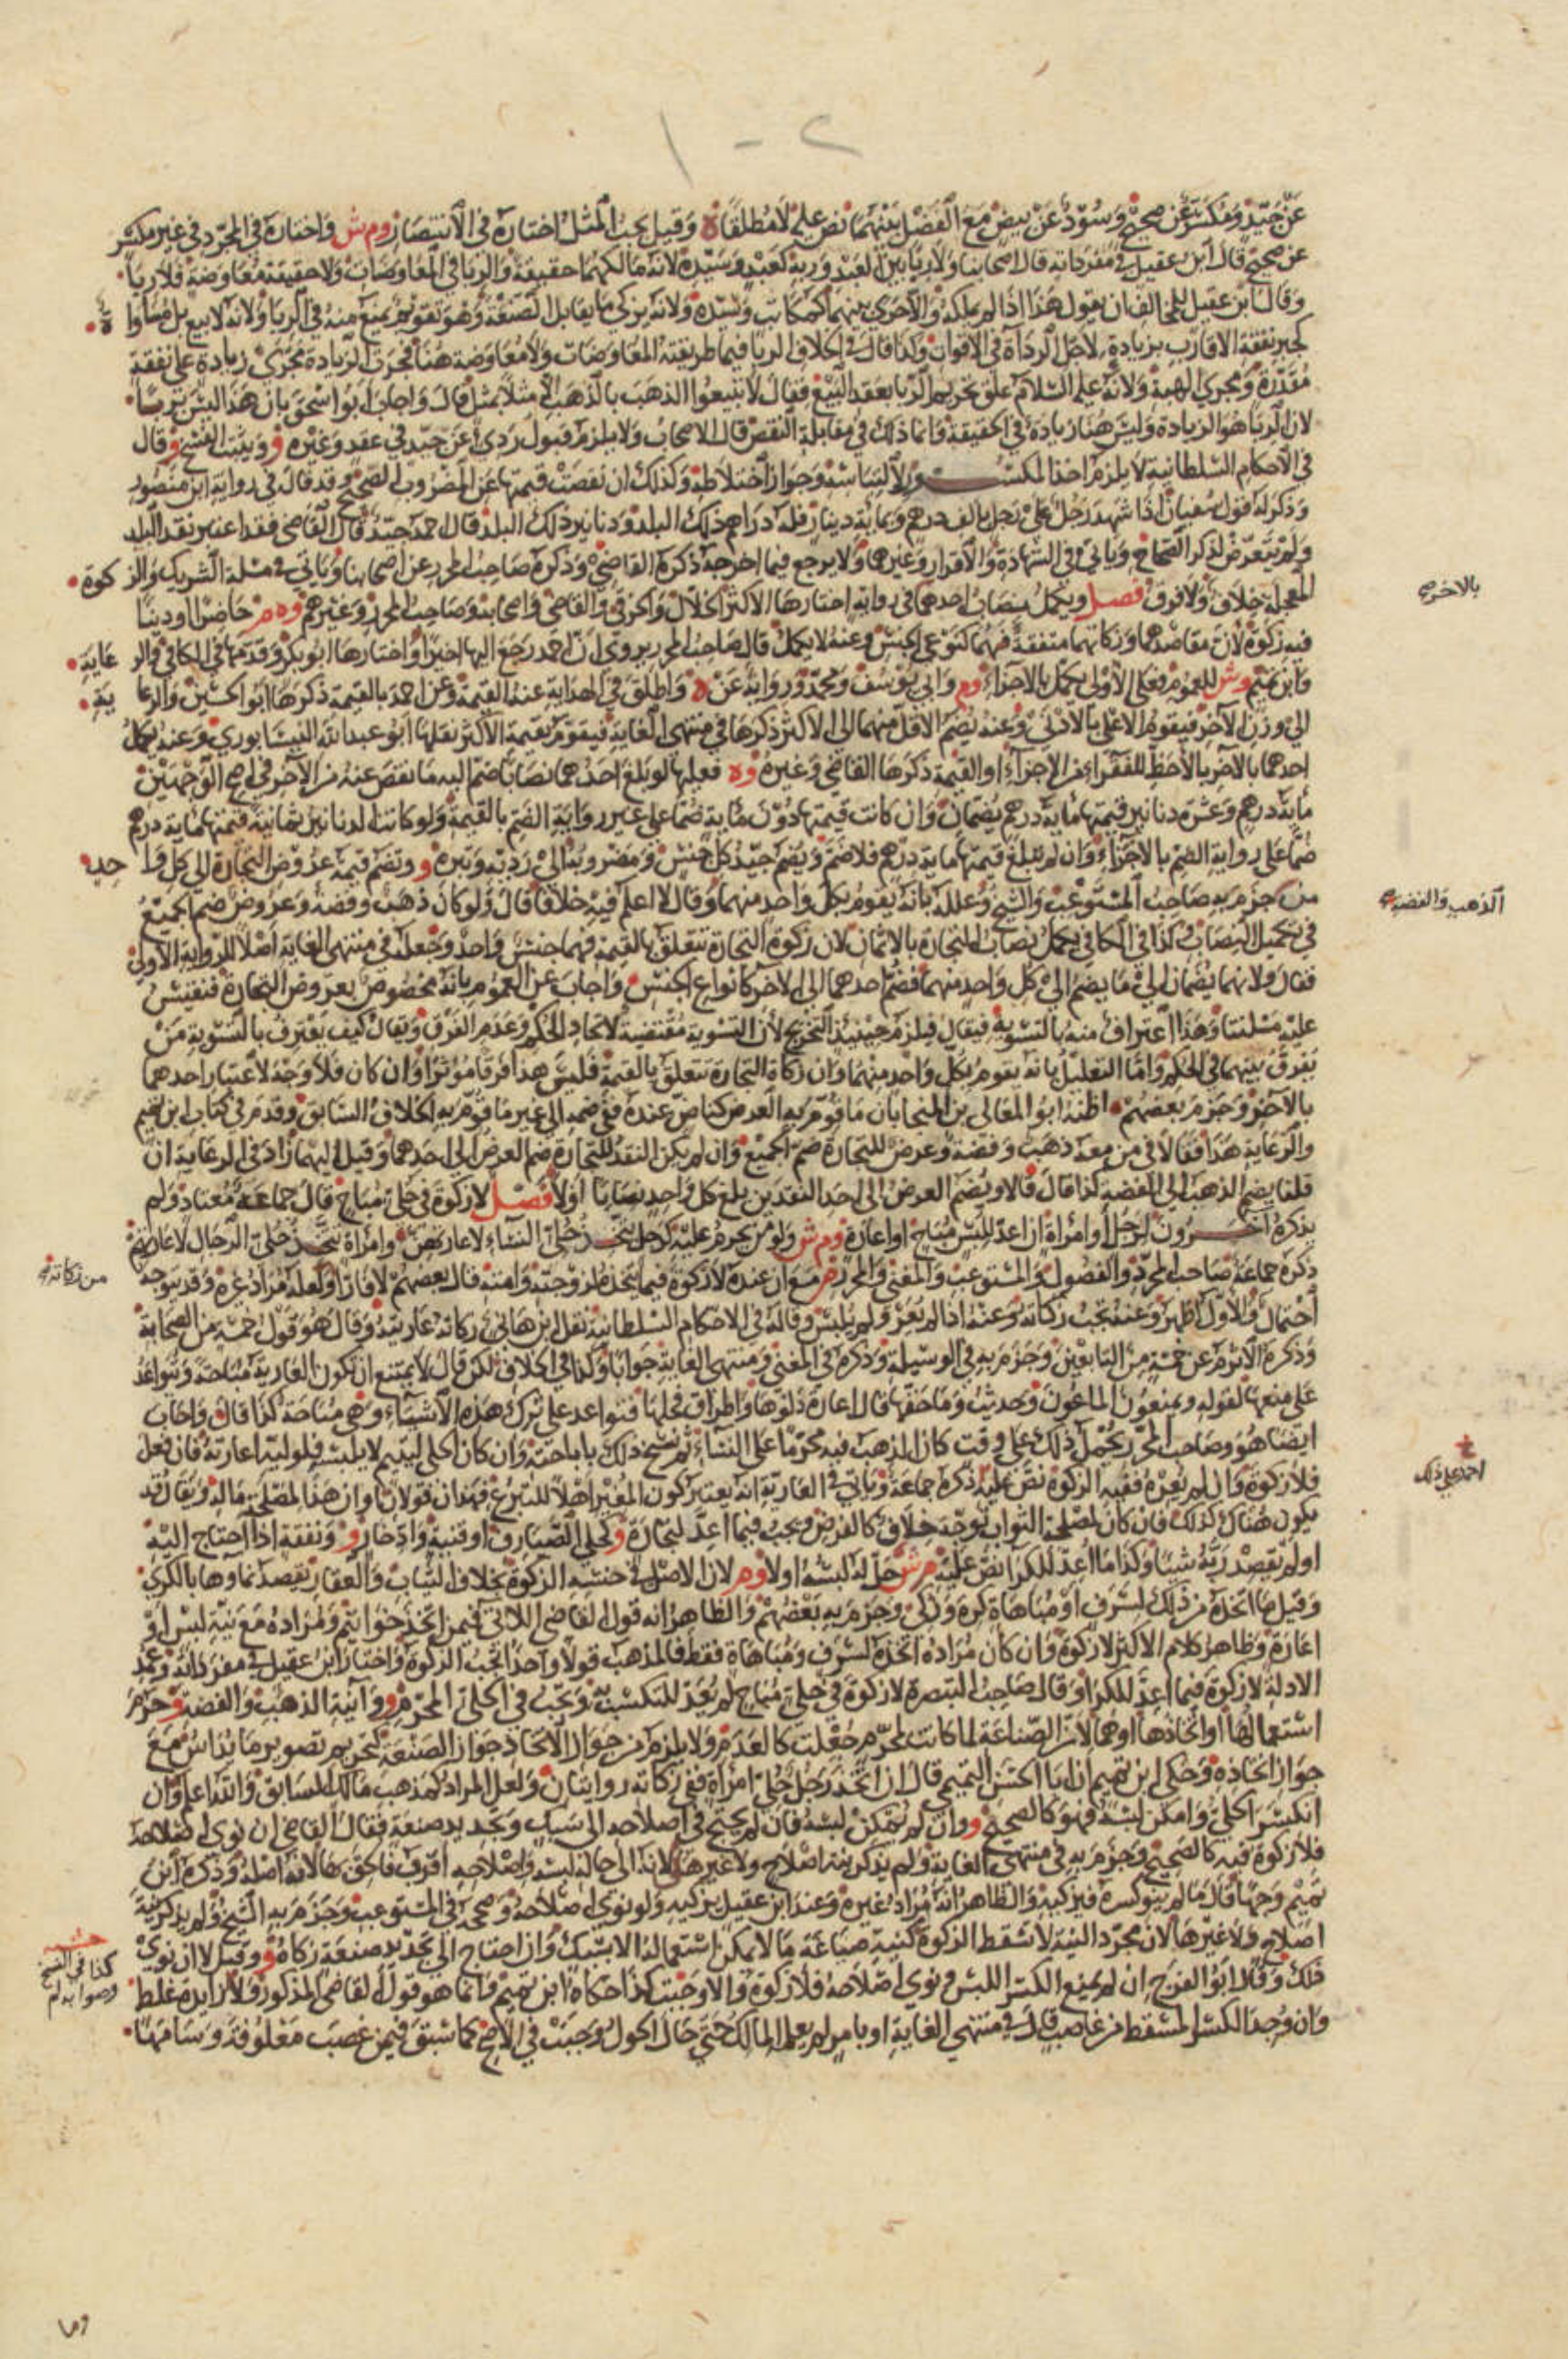 عن جيد ومكسر عن صحيح وسود عن بيض مع الفضل بينهما نص عليه لا مطلقا ه وقيل يجب المثل اختاره في الانتصار وم ش واختاره في المجرد في غير مكسر
عن صحيح قال ابن عقيل في مفرداته قال اصحابنا ولا ربا بين العبد وربه كعبد وسيده لانه مالكهما حقيقة والربا في المعاوضات ولا حقيقة معاوضة فلا ربا
وقال ابن عقيل للمخالف ان يقول هذا اذا لم يملكه والا جرى بينهما كمكاتب وسيده ولانه يزكي ما يقابل الصنعة وهو تقويم يمنع منه في الربا ولانه لا بيع بل مساواة
كجبر نفقة الاقارب بزيادة لاجل الرداة في الاقوات وكذا قال في الخلاف الربا فيما طريقته المعاوضات ولا معاوضة هنا فجرت الزيادة مجرى زيادة على نفقة
مقدرة ومجرى الهبة ولانه عليه السلام علق تحريم الربا بعقد البيع فقال لا تبيعوا الذهب بالذهب الا مثلا بمثل قال واجاب ابو اسحق بان هذا ليس بربا
لان الربا هو الزيادة وليس هنا زيادة في الحقيقة وانما ذلك في مقابلة النقص قال الاصحاب ولا يلزم قبول ردي عن جيد في عقد وغيره و ويثبت الفسخ و وقال
في الاحكام السلطانية لا يلزم اخذ المكسور لالتباسه وجواز اختلاطه وكذلك ان نقصت قيمتها عن المضروب الصحيح وقد قاله في رواية ابن منصور
وذكر له قول سفيان اذا شهد رجل على رجل بالف درهم وبماية دينار فله دراهم ذلك البلد ودنانير ذلك البلد قال احمد جيد قال القاضي فقد اعتبر نقد البلد
ولم يتعرض لذكر الصحاح وياتي في الشهادة والاقرار وغيرهما ولا يرجع فيما اخرجه ذكره القاضي وذكره صاحب المحرر عن اصحابنا وياتي في مسلة الشريك والزكوة
المعجلة خلاف ولا فرق فصل ويكمل نصاب احدهما في رواية اختارها الاكثر الخلال والخرقي والقاضي واصحابه وصاحب المحرر وغيرهم وه م حاضرا او دينا
بالاخر
فيه زكوة لان مقاصدهما وزكاتهما متفقة فهما كنوعي الجنس وعنه لا يكمل قال صاحب المحرر يروى ان احمد رجع اليها اخيرا واختارها ابو بكر وقدمها في الكافي والرعاية
وابن تميم وش للعموم فعلى الاولى يكمل بالاجزاء وم وابي يوسف ومحمد ورواية عن ه واطلق في الهداية عنه القيمة وعن احمد بالقيمة ذكرها ابو الحسين والرعاية
الى وزن الاخر فيقوم الاعلى بالادنى وعنه يضم الاقل منهما الى الاكثر ذكرها في منتهى الغاية فيقوم بقيمة الاكثر نقلها ابو عبد الله النيسابوري وعنه يكمل
احدهما بالاخر بالاحظ للفقراء من الاجزاء او القيمة ذكرها القاضي وغيره وه فعليها لو بلغ احدهما نصابا ضم اليه ما نقص عنه من الاخر في اصح الوجهين
ماية درهم وعشرة دنانير قيمتها ماية درهم يضمان وان كانت قيمتها دون ماية ضما على غير رواية الضم بالقيمة ولو كانت الدنانير ثمانية قيمتها ماية درهم
ضما على رواية الضم بالاجزاء وان لم تبلغ قيمتها ماية درهم فلا ضم ويضم جيد كل جنس ومضروبه الى رديه وتبره و وتضم قيمة عروض التجارة الى كل واحد
من جزم به صاحب المستوعب والشيخ وعلله بانه يقوم بكل واحد منهما وقال لا اعلم فيه خلافا قال ولو كان ذهب وفضة وعروض ضم الجميع
الذهب والفضة
في تكميل النصاب وكذا في الكافي يكمل نصاب التجارة بالاثمان لان زكوة التجارة تتعلق بالقيمة فهما جنس واحد وجعله في منتهى الغاية اصلا للرواية الاولى
فقال ولانهما يضمان الى ما يضم الى كل واحد منهما فضم احدهما الى الاخر كانواع الجنس واجاب عن العموم بانه مخصوص بعروض التجارة فنقيس
عليه مسلتنا وهذا اعتراف منه بالتسوية فيقال فيلزم حينئذ التخريج لان التسوية مقتضية لاتحاد الحكم وعدم الفرق ويقال كيف يعترف بالتسوية من
يفرق بينهما في الحكم واما التعليل بانه يقوم بكل واحد منهما وان زكاة التجارة تتعلق بالقيمة فليس هذا فرقا مؤثرا وان كان فلا وجه لاعتبار احدهما
بالاخر وجزم بعضهم اظنه ابو المعالي بن المنجا بان ما قوم به العرض كناض عنده ففي ضمه الى غير ما قوم به الخلاف السابق وقدم في كتاب ابن تميم
والرعاية هذا فقالا في من معه ذهب وفضة وعرض للتجارة ضم الجميع وان لم يكن النقد للتجارة ضم العرض الى احدهما وقيل اليهما زاد في الرعاية ان
قلنا بضم الذهب الى الفضة كذا قال قالا ويضم العرض الى احد النقدين بلغ كل واحد نصابا او لا فصل لا زكوة في حلي مباح قال جماعة معتاد ولم
يذكره اخرون لرجل او امرأة ان اعد للبس مباح او اعارة وم ش ولو من يحرم عليه كرجل يتخذ حلي النساء لاعارتهن وامرأة تتخذ حلي الرجال لاعارتهم
ذكره جماعة صاحب المجرد والفصول والمستوعب والمغني والمحرر مع ان عنده لا زكوة فيما يتخذه لزوجته وامته قال بعضهم لا فارا ولعله مراد غيره وقد يتوجه
من زكاته
احتمال والاول اظهر وعنه تجب زكاته وعنه اذا لم يعر ولم يلبس وقاله في الاحكام السلطانية نقل ابن هاني زكاته عاريته وقال هو قول خمسة من الصحابة
وذكره الاثرم عن خمسة من التابعين وجزم به في الوسيلة وذكره في المغني ومنتهى الغاية جوابا وكذا في الخلاف لكن قال لا يمتنع ان تكون العارية مباحة وتواعد
على منعها لقوله ويمنعون الماعون وحديث وما حقها قال اعارة دلوها واطراق فحلها فتواعد على ترك هذه الاشياء وهي مباحة كذا قال واجاب
ايضا هو وصاحب المحرر بحمل ذلك على وقت كان الذهب فيه محرما على النساء ثم نسخ ذلك باباحته وان كان الحلي ليتيم لا يلبسه فلوليه اعارته فان فعل
فلا زكوة وان لم يعره ففيه الزكوة نص عليه ذكره جماعة وياتي في العارية انه يعتبر كون المعير اهلا للتبرع فهذان قولان او ان هذا لمصلحة ماله ويقال قد
احمد على ذلك
يكون هناك كذلك فان كان لمصلحة الثواب توجه خلاف كالقرض ويجب فيما اعد لتجارة و كحلي الصيارف او قنية وادخار و ونفقة اذا احتاج اليه
او لم يقصد ربه شيئا وكذا ما اعد للكرا نص عليه م ش حل له لبسه او لا وم ر لان الاصل في جنسه الزكوة بخلاف الثياب والعقار بقصد نماوها بالكري
وقيل ما اتخذه من ذلك لسرف او مباهاة كره وزكي وجزم به بعضهم والظاهر انه قول القاضي الاتي فيمن اتخذ خواتيم ومراده مع نية لبس او
اعارة وظاهر كلام الاكثر لا زكوة وان كان مراده اتخذه لسرف ومباهاة فقط فالمذهب قولا واحدا تجب الزكوة واختار ابن عقيل في مفرداته وعمد
الادلة لا زكوة فيما اعد للكرا وقال صاحب التبصرة لا زكوة في حلي مباح لم يعد للتكسب به وتجب في الحلي المحرم و وانية الذهب والفضة و حرم
استعمالها او اتخاذها او هما لان الصناعة لما كانت لمحرم جعلت كالعدم ولا يلزم من جواز الاتخاذ جواز الصنعة كتحريم تصوير ما يداس مع
جواز اتخاذه وحكى ابن تميم ان ابا الحسن التميمي قال ان اتخذ رجل حلي امرأة ففي زكاته روايتان ولعل المراد كمذهب مالك السابق والله اعلم وان
انكسر الحلي وامكن لبسه فهو كالصحيح و وان لم يمكن لبسه فان لم يحتج في اصلاحه الى سبك وتجديد صنعة فقال القاضي ان نوى اصلاحه
فلا زكوة فيه كالصحيح وجزم به في منتهى الغاية ولم يذكر نية اصلاح ولا غيرها لانه الى حالة لبسه واصلاحه اقرب فالحق بها لانه اصله وذكره ابن
تميم وجها قال ما لم ينو كسره فيزكيه والظاهر انه مراد غيره وعند ابن عقيل يزكيه ولو نوى اصلاحه وصححه في المستوعب وجزم به الشيخ ولم يذكر نية
اصلاح ولا غيرها لان مجرد النية لا تسقط الزكوة كنية صياغة ما لا يمكن استعماله الا بسبك وان احتاج الى تجديد صنعة زكاه و وقيل لا ان نوى
ذلك وقال ابو الفرج ان لم يمنع الكسر اللبس ونوى اصلاحه فلا زكوة والا وجبت كذا حكاه ابن تميم وانما هو قول القاضي المذكور ولان ابرة غلط
كذا في النسخ وصوابه لم
وان وجد الكسر المسقط من غاصب قال في منتهى الغاية او بامر لم يعلم المالك حتى حال الحول وجبت في الاصح كما سبق فيمن غصب معلوفة وسامها